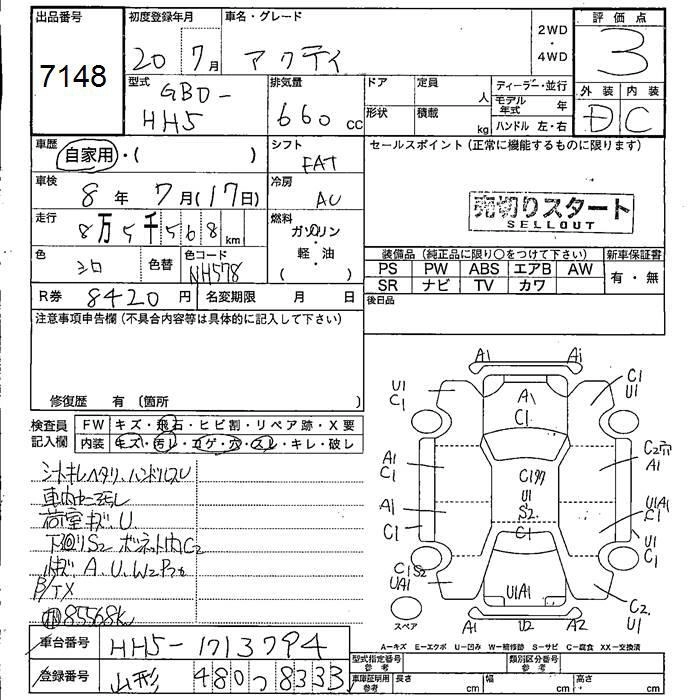 出品番号
7148
初度登録年月
20 7月
車名・グレード
アクティ
2WD
・
4WD
評価点
3
外装 内装
D C
型式
GBD-
HH5
排気量
660 cc
ドア
定員
人
形状
積載
kg
ディーラー・並行
モデル年式 年
ハンドル 左・右
車歴
自家用・( )
シフト
FAT
セールスポイント(正常に機能するものに限ります)
売切りスタート
SELLOUT
車検
8年 7月(17日)
冷房
AC
走行
8万5千568km
燃料
ガソリン
・
軽・油
( )
色
シロ
色替
色コード
NH578
装備品(純正品に限り○をつけて下さい)
新車保証書
PS PW ABS エアB AW
SR ナビ TV カワ
有・無
R券 8420円
名変期限 月 日
後日品
注意事項申告欄(不具合内容等は具体的に記入して下さい)
修復歴 有(箇所 )
検査員
記入欄
FW キズ・飛石・ヒビ割・リペア跡・X要
内装 キズ・汚レ・コゲ・穴・スレ・キレ・破レ
シートキレヘタリ、ハンドルスレ
荷室キズU
下回りS2 ボンネット内C2
85568k
車台番号 HH5-1713794
登録番号 山形 480つ8333
A1 Ai
U1
C1
A1
C1
C1
U1
A1
C1
C197
U1
S2
C2穴
A1
A1
C1
C1
U1A1
C1
U1
C1
C1S2
UA1
U1A1
C2
U1
スペア
A1 U2 A2
A=キズ E=エクボ U=凹み W=補修跡 S=サビ C=腐食 XX=交換済
型式指定番号
参考
類別区分番号
参考
車庫証明用
参考
長さ cm
幅 cm
高さ cm